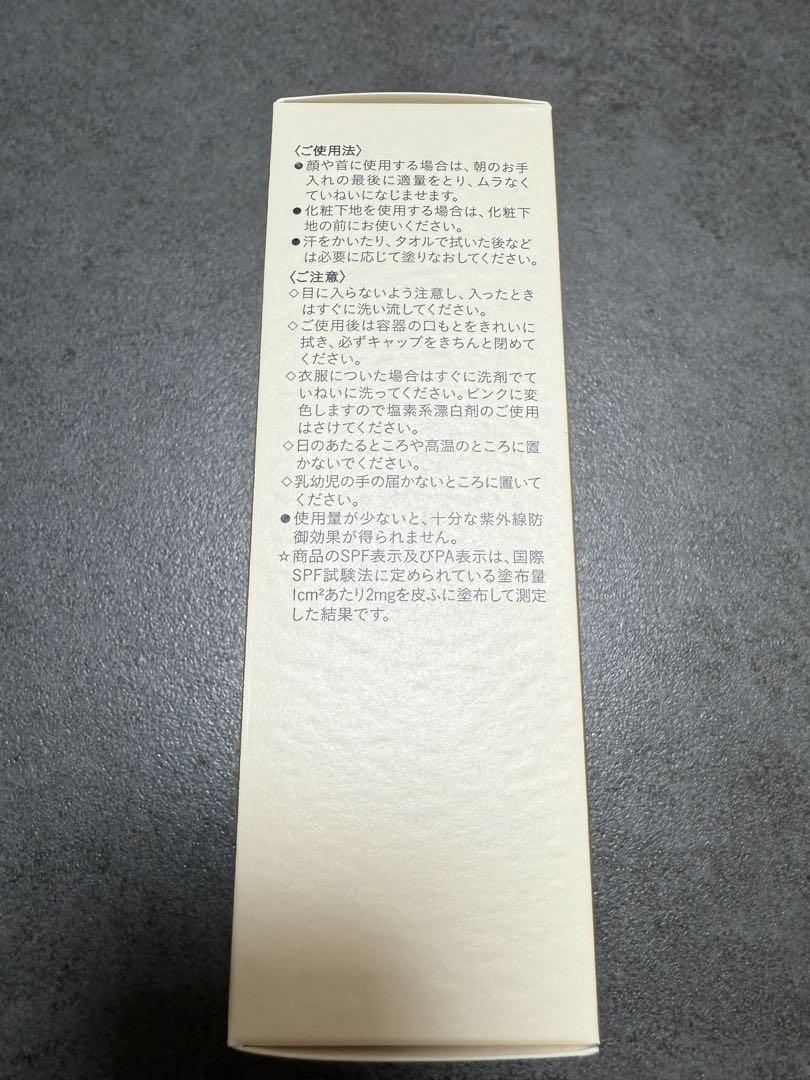 〈ご使用法〉
●顔や首に使用する場合は、朝のお手
入れの最後に適量をとり、ムラなく
ていねいになじませます。
●化粧下地を使用する場合は、化粧下
地の前にお使いください。
●汗をかいたり、タオルで拭いた後など
は必要に応じて塗りなおしてください。
〈ご注意〉
◇目に入らないよう注意し、入ったとき
はすぐに洗い流してください。
◇ご使用後は容器の口もとをきれいに
拭き、必ずキャップをきちんと閉めて
ください。
◇衣服についた場合はすぐに洗剤でて
いねいに洗ってください。ピンクに変
色しますので塩素系漂白剤のご使用
はさけてください。
◇日のあたるところや高温のところに置
かないでください。
◇乳幼児の手の届かないところに置いて
ください。
●使用量が少ないと、十分な紫外線防
御効果が得られません。
☆商品のSPF表示及びPA表示は、国際
SPF試験法に定められている塗布量
1cm²あたり2mgを皮ふに塗布して測定
した結果です。